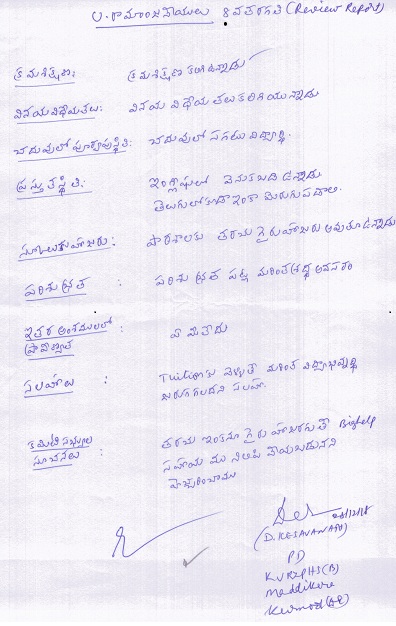 U. రామాంజనేయులు 8 వ తరగతి (Review Report)
క్రమశిక్షణ: క్రమశిక్షణ కలిగి ఉన్నాడు
వినయవిధేయతలు: వినయ విధేయతలు కలిగియున్నాడు
చదువులో పూర్వపుస్థితి: చదువులో సగటు విద్యార్థి.
ప్రస్తుత స్థితి: ఇంగ్లీషులో వెనుకబడి ఉన్నాడు
తెలుగులో కూడా ఇంకా మెరుగుపడాలి.
స్కూలుకు హాజరు: పాఠశాలకు తరచు గైరుహాజరు అవుతూ ఉన్నాడు
పరిశుభ్రత : పరిశుభ్రత పట్ల మరింత శ్రద్ధ అవసరం
ఇతర అంశములలో :
ప్రావీణ్యత ఏమీ లేదు
సలహాలు : Tuitionకు వెళ్ళితే మరింత విద్యాభివృద్ధి
జరుగగలదని సలహా
కమిటి సభ్యుల
సూచనలు : తరచు ఇంకనూ గైరుహాజరు Bighelp
సహాయము నిలిపి వేయబడునని
హెచ్చరించాము
(D. KESAVA NAPD)
PD
K.V.R Z.P.H.S (B)
Maddikera
Kurnool